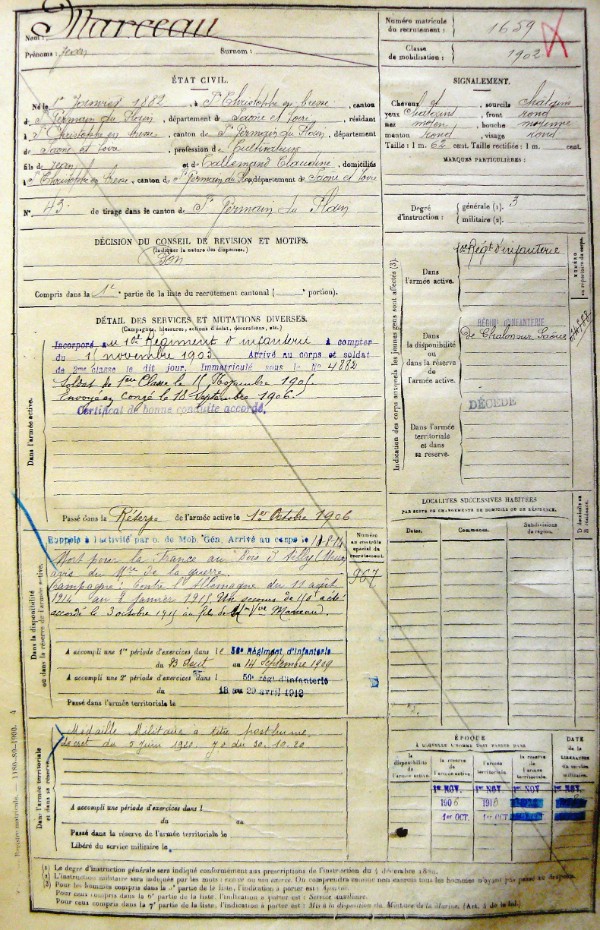 Nom : Marceau
Prénoms : Jean Surnom :
Numéro matricule du recrutement : 1659
Classe de mobilisation : 1902
ÉTAT CIVIL.
Né le 1882, à St Christophe en Bresse, canton
de St Germain du Plain, département de Saône et Loire, résidant
à St Christophe en Bresse, canton de St Germain du Plain, département
de Saône et Loire, profession de Cultivateur
fils de Jean et de Lallemand Claudine, domiciliés
à St Christophe en Bresse, canton de St Germain du P. département de Saône et Loire
N° 43 de tirage dans le canton de St Germain du Plain
SIGNALEMENT.
Cheveux et sourcils châtains
yeux front rond
nez moyen bouche moyenne
menton rond visage rond
Taille : 1 m. 62 cent. Taille rectifiée : 1 m. cent.
MARQUES PARTICULIÈRES :
Degré d'instruction : générale (1). 3
militaire (2).
DÉCISION DU CONSEIL DE REVISION ET MOTIFS.
(Indiquer la nature des dispenses.)
Bon
Compris dans la 1e partie de la liste du recrutement cantonal ( portion).
DÉTAIL DES SERVICES ET MUTATIONS DIVERSES.
(Campagnes, blessures, actions d'éclat, décorations, etc.)
Dans l'armée active.
Incorporé au Régiment d'infanterie à compter
du novembre 1903 Arrivé au corps et soldat
de 2ème classe le dit jour, Immatriculé sous le N° 4882
Soldat de 1ère Classe le
Envoyé en congé le 18 Septembre 1906
Certificat de bonne conduite accordé.
Passé dans la Réserve de l'armée active le 1er Octobre 1906
Indication des corps auxquels les jeunes gens sont affectés (3).
Dans l'armée active.
Régt d'infanterie
Dans la disponibilité ou dans la réserve de l'armée active.
RÉGIMENT D'INFANTERIE
de Chalon sur Saône
DÉCÉDÉ
Dans l'armée territoriale et dans sa réserve.
NUMÉRO au répertoire du corps.
Dans la disponibilité ou dans la réserve de l'armée active.
Rappelé à l'activité par o. de Mob. Gén. Arrivé au corps le
Mort pour la France au Bois d'Ailly (Meuse)
avis du Mtre de la guerre
Campagne : Contre l'Allemagne du 11 août
1914 au 2 Janvier 1915. Un secours de 150f a été
accordé le 3 octobre 1915 au fils de Mme Vve Marceau.
Numéro au contrôle spécial du recrutement.
957
A accompli une 1re période d'exercices dans l e 56e Régiment d'Infanterie
du 23 août au 14 Septembre 1909
A accompli une 2e période d'exercices dans l 56e régt d'Infanterie
du 13 au 29 avril 1912
Passé dans l'armée territoriale le
LOCALITÉS SUCCESSIVES HABITÉES
PAR SUITE DE CHANGEMENTS DE DOMICILE OU DE RÉSIDENCE.
Dates. Communes. Subdivisions de région.
Dans l'armée territoriale et dans sa réserve.
Médaille Militaire à titre posthume
décret du 5 Juin 1920 J. O. du 30.10.20
A accompli une période d'exercices dans l
du au
Passé dans la réserve de l'armée territoriale le
Libéré du service militaire le
ÉPOQUE
À LAQUELLE L'HOMME DOIT PASSER DANS
la disponibilité de l'armée active. la réserve de l'armée active. l'armée territoriale. la réserve de l'armée territoriale.
DATE de la LIBÉRATION du service militaire.
1er NOV. 1er NOV. 1er NOV. 1er NOV.
1906 1916
1er OCT. 1er OCT.
(1) Le degré d'instruction générale sera indiqué conformément aux prescriptions de l'instruction du
(2) L'instruction militaire sera indiquée par les mots : exercé ou non exercé.
(3) Pour les hommes compris dans la partie de la liste, l'indication à porter est : Ajourné.
Pour ceux compris dans la 6e partie de la liste, l'indication à porter est : Service auxiliaire.
Pour ceux compris dans la 7e partie de la liste, l'indication à porter est : Mis à la disposition du Ministre de la Marine